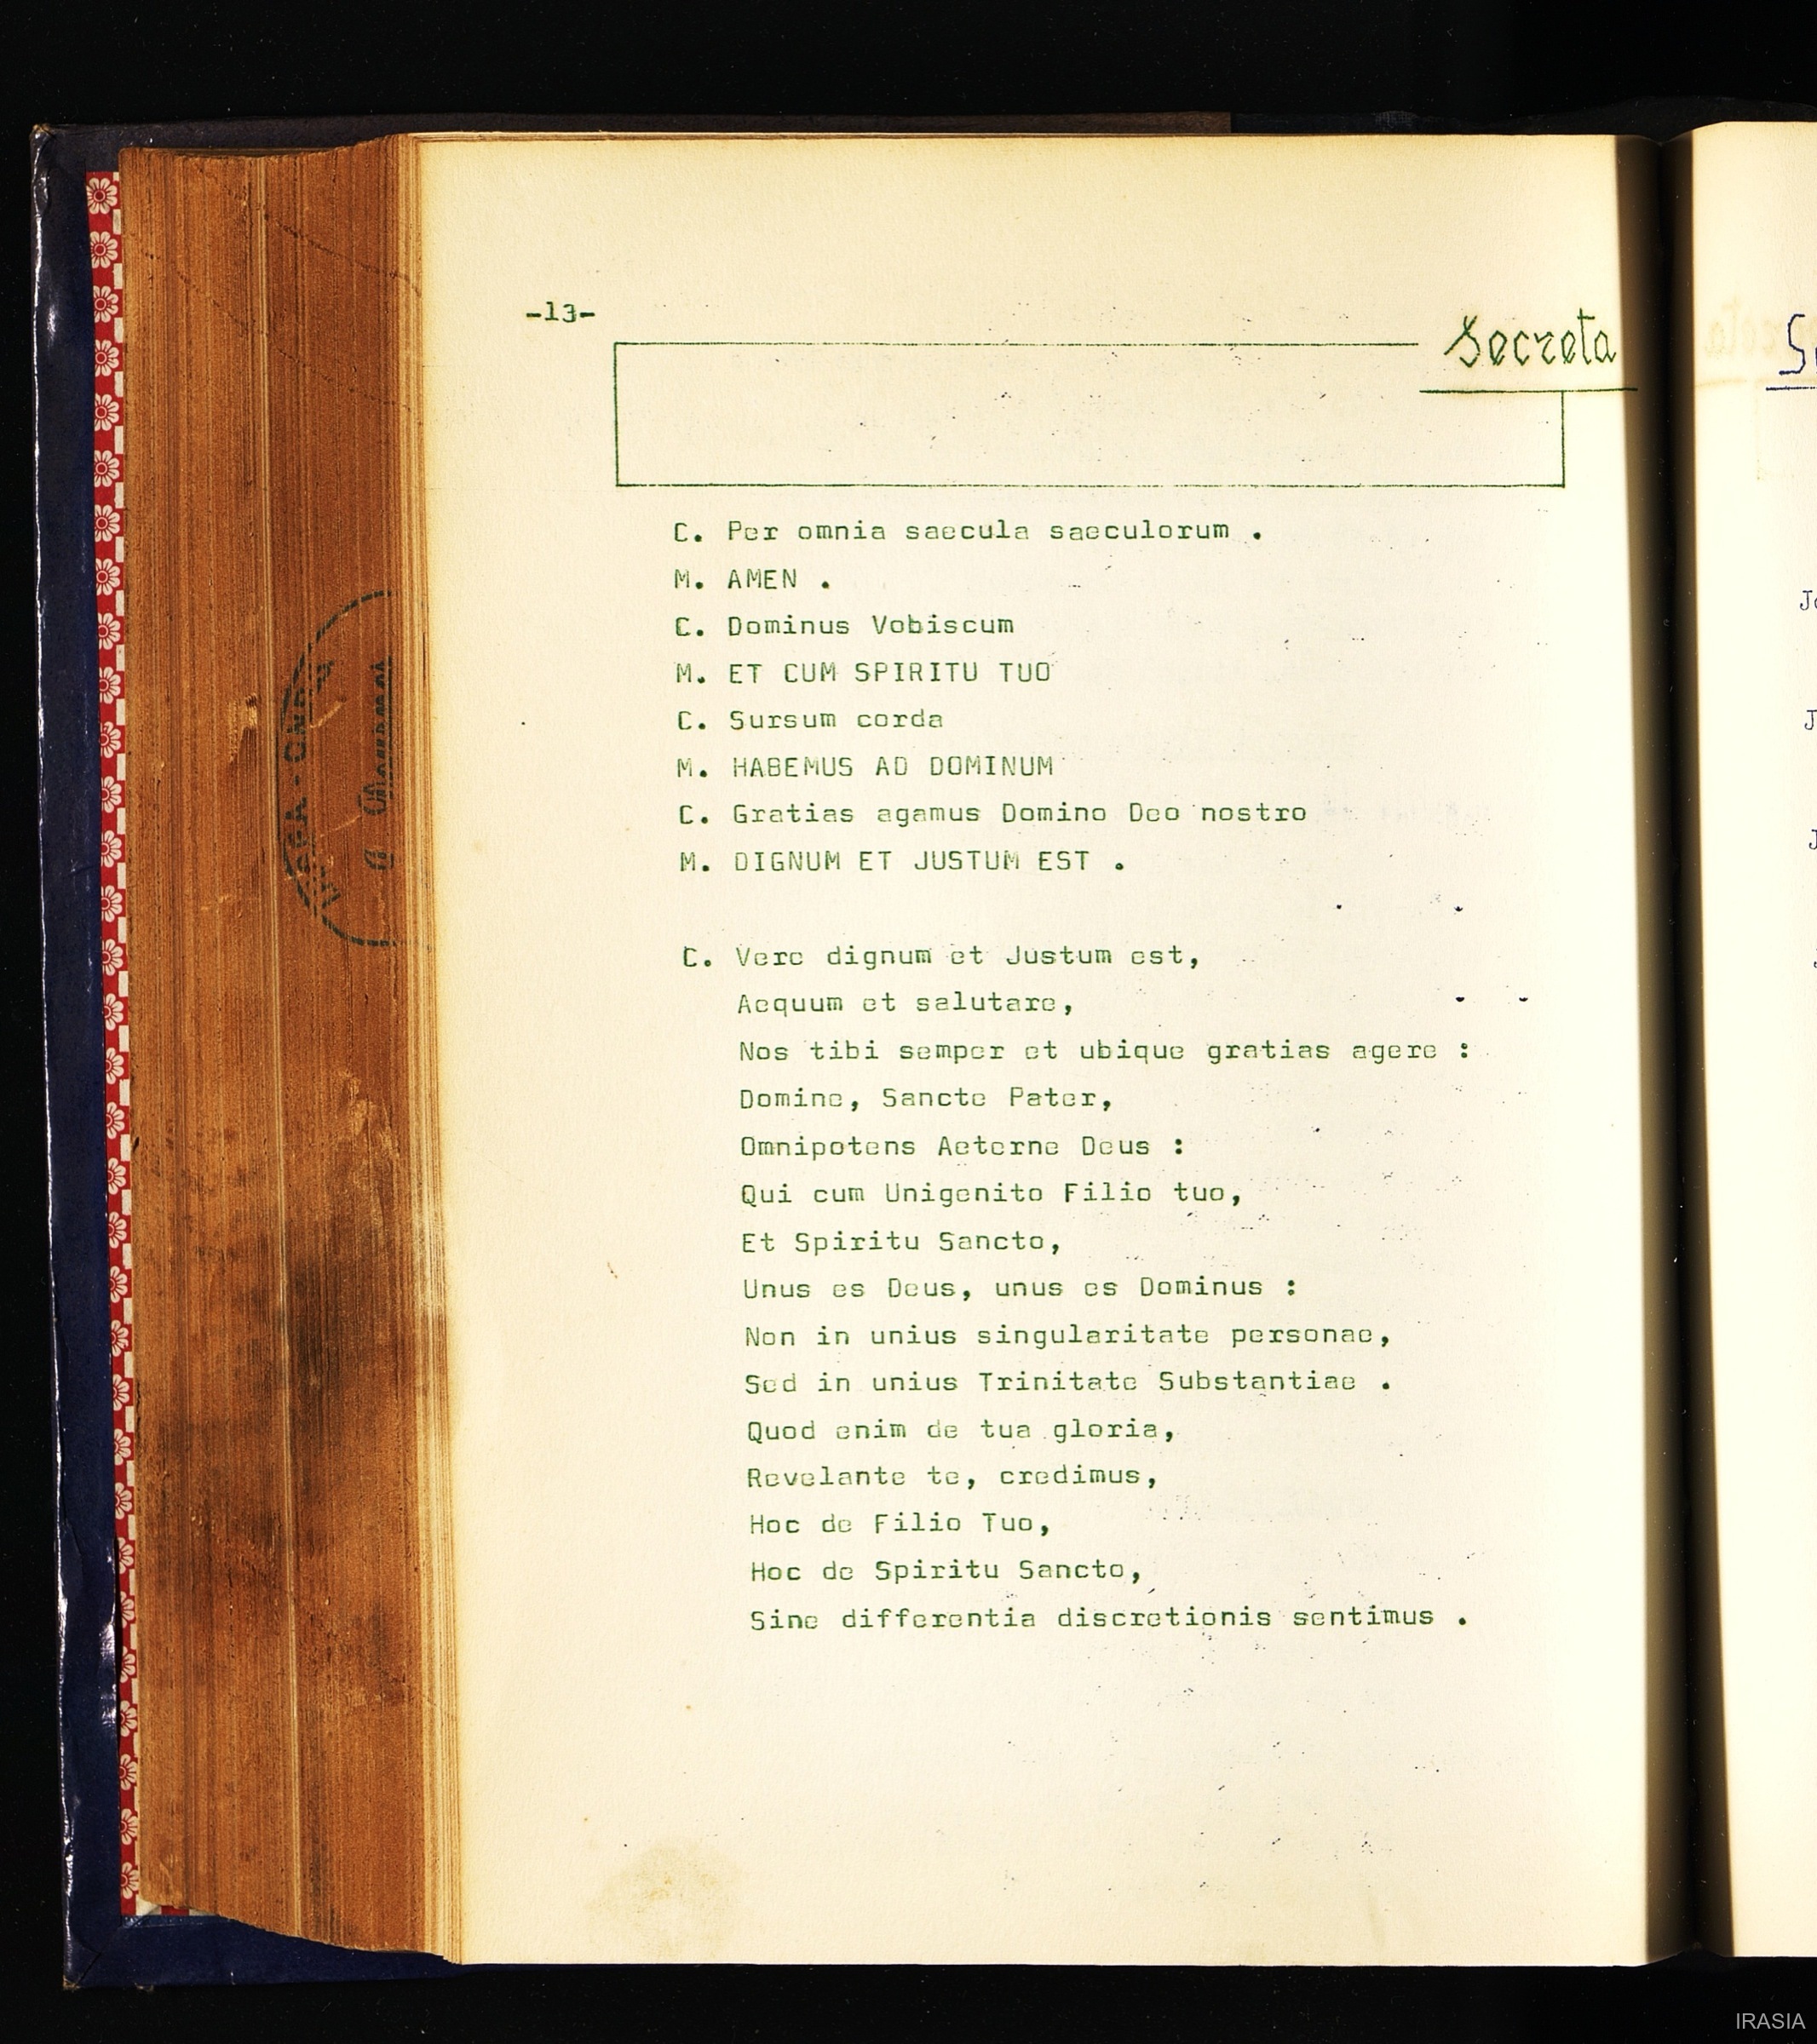 -13-
Secreta
C. Per omnia saecula saeculorum .
M. AMEN .
C. Dominus Vobiscum
M. ET CUM SPIRITU TUO
C. Sursum corda
M. HABEMUS AD DOMINUM
C. Gratias agamus Domino Deo nostro
M. DIGNUM ET JUSTUM EST .
C. Vere dignum et Justum est,
Aequum et salutare,
Nos tibi semper et ubique gratias agere :
Domine, Sancte Pater,
Omnipotens Aeterne Deus :
Qui cum Unigenito Filio tuo,
Et Spiritu Sancto,
Unus es Deus, unus es Dominus :
Non in unius singularitate personae,
Sed in unius Trinitate Substantiae .
Quod enim de tua gloria,
Revelante te, credimus,
Hoc de Filio Tuo,
Hoc de Spiritu Sancto,
Sine differentia discretionis sentimus .
IRASIA